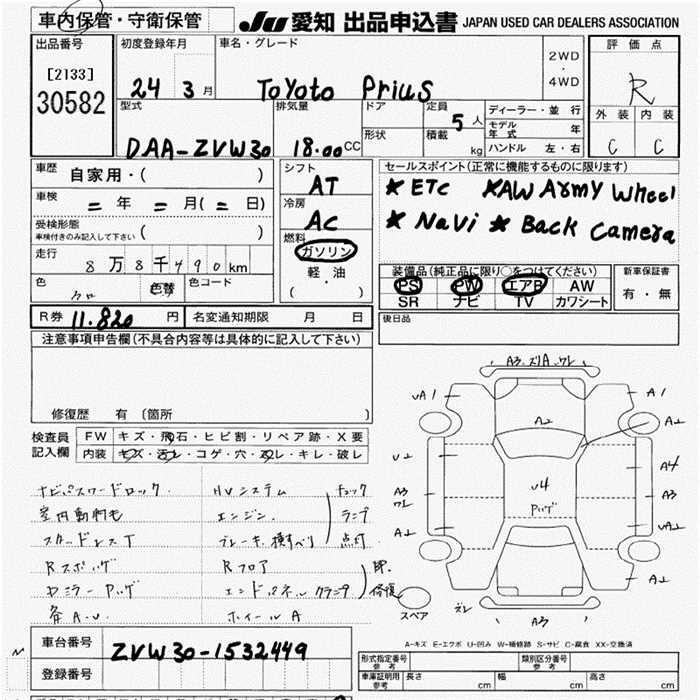 車内保管・守衛保管
JU 愛知 出品申込書 JAPAN USED CAR DEALERS ASSOCIATION
出品番号
[2133]
30582
初度登録年月
24 3 月
車名・グレード
ToYoto Prius
2WD
・
4WD
評価点
R
外装 内装
C C
型式
DAA-ZVW30
排気量
18.00 CC
ドア
形状
定員
5 人
積載
kg
ディーラー・並行
モデル年式 年
ハンドル 左・右
車歴
自家用・( )
車検
= 年 = 月( = 日)
受検形態
車検付きのみ記入して下さい ( )
走行
8 万 8 千 490 km
色
クロ
色替
色コード
R券 11.820 円
名変通知期限 月 日
シフト
AT
冷房
AC
燃料
ガソリン
軽・油
( )
セールスポイント(正常に機能するものに限ります)
★ ETC ★AW Army Wheel
★ NaVi ★ Back Camera
装備品(純正品に限り○をつけてください)
PS PW エアB AW
SR ナビ TV カワシート
新車保証書
有・無
後日品
注意事項申告欄(不具合内容等は具体的に記入して下さい)
修復歴 有 〔箇所 〕
検査員
記入欄
FW キズ・飛石・ヒビ割・リペア跡・X要
内装 キズ・汚レ・コゲ・穴・スレ・キレ・破レ
ナビパスワードロック
室内動物毛
スタッドレスT
Rスポハゲ
各A.U.
HVシステム
エンジン
ブレーキ・横すべり
チェック
ランプ
点灯
Rフロア
エンドパネル
修復
ホイールA
A3. ズレA ワレ
UA1
A1
A2
A2
U2
A4
U4
ハゲ
A3
ワレ
A3
A2
UA2
A2
A2
スペア
ズレ
A3
A-キズ E-エクボ U-凹み W-補修跡 S-サビ C-腐食 XX-交換済
車台番号
ZVW30-1532449
登録番号
形式指定番号
参考
類別区分番号
参考
車庫証明用
参考
長さ cm 幅 cm 高さ cm